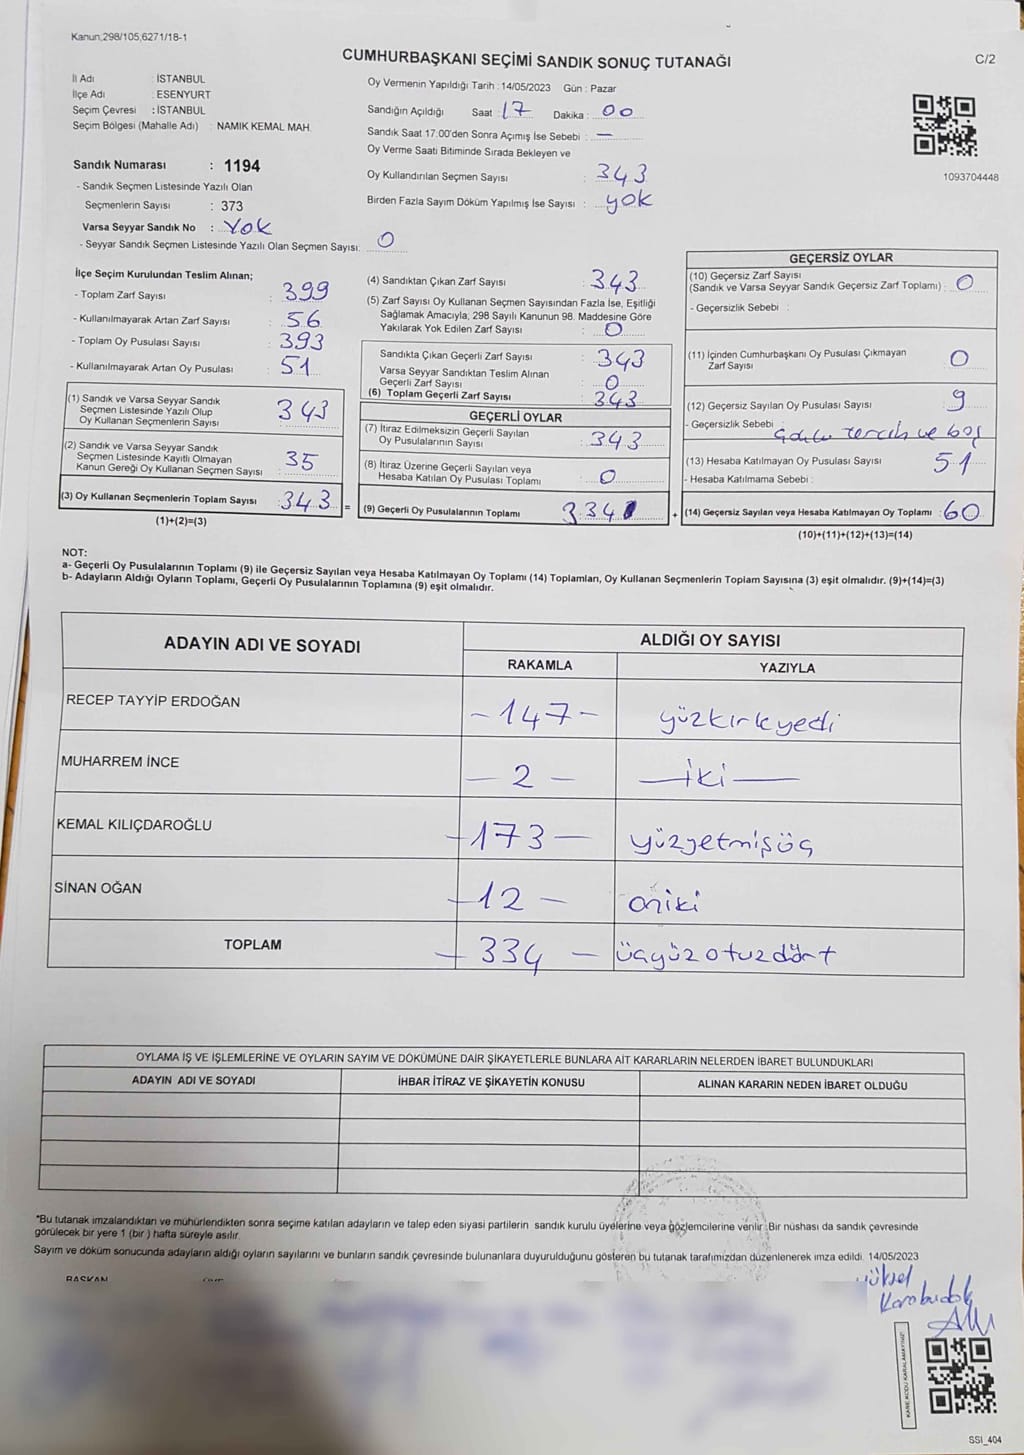 Kanun,298/105,6271/18-1
CUMHURBAŞKANI SEÇİMİ SANDIK SONUÇ TUTANAĞI
C/2
İl Adı : İSTANBUL
İlçe Adı : ESENYURT
Seçim Çevresi : İSTANBUL
Seçim Bölgesi (Mahalle Adı) : NAMIK KEMAL MAH.
Oy Vermenin Yapıldığı Tarih : 14/05/2023 Gün : Pazar
Sandığın Açıldığı Saat : 17 Dakika : 00
Sandık Saat 17:00'den Sonra Açımış İse Sebebi : —
Oy Verme Saati Bitiminde Sırada Bekleyen ve
Oy Kullandırılan Seçmen Sayısı : 343
Birden Fazla Sayım Döküm Yapılmış İse Sayısı : yok
1093704448
Sandık Numarası : 1194
- Sandık Seçmen Listesinde Yazılı Olan
Seçmenlerin Sayısı : 373
Varsa Seyyar Sandık No : YOK
- Seyyar Sandık Seçmen Listesinde Yazılı Olan Seçmen Sayısı: 0
İlçe Seçim Kurulundan Teslim Alınan;
- Toplam Zarf Sayısı : 399
- Kullanılmayarak Artan Zarf Sayısı : 56
- Toplam Oy Pusulası Sayısı : 393
- Kullanılmayarak Artan Oy Pusulası : 51
(1) Sandık ve Varsa Seyyar Sandık
Seçmen Listesinde Yazılı Olup
Oy Kullanan Seçmenlerin Sayısı : 343
(2) Sandık ve Varsa Seyyar Sandık
Seçmen Listesinde Kayıtlı Olmayan
Kanun Gereği Oy Kullanan Seçmen Sayısı : 35
(3) Oy Kullanan Seçmenlerin Toplam Sayısı : 343 =
(1)+(2)=(3)
(4) Sandıktan Çıkan Zarf Sayısı : 343
(5) Zarf Sayısı Oy Kullanan Seçmen Sayısından Fazla İse, Eşitliği
Sağlamak Amacıyla, 298 Sayılı Kanunun 98. Maddesine Göre
Yakılarak Yok Edilen Zarf Sayısı : 0
Sandıkta Çıkan Geçerli Zarf Sayısı : 343
Varsa Seyyar Sandıktan Teslim Alınan
Geçerli Zarf Sayısı : 0
(6) Toplam Geçerli Zarf Sayısı : 343
GEÇERLİ OYLAR
(7) İtiraz Edilmeksizin Geçerli Sayılan
Oy Pusulalarının Sayısı : 343
(8) İtiraz Üzerine Geçerli Sayılan veya
Hesaba Katılan Oy Pusulası Toplamı : 0
(9) Geçerli Oy Pusulalarının Toplamı : 334 +
GEÇERSİZ OYLAR
(10) Geçersiz Zarf Sayısı
(Sandık ve Varsa Seyyar Sandık Geçersiz Zarf Toplamı) : 0
- Geçersizlik Sebebi :
(11) İçinden Cumhurbaşkanı Oy Pusulası Çıkmayan
Zarf Sayısı : 0
(12) Geçersiz Sayılan Oy Pusulası Sayısı : 9
- Geçersizlik Sebebi : tercih ve boş
(13) Hesaba Katılmayan Oy Pusulası Sayısı : 51
- Hesaba Katılmama Sebebi :
(14) Geçersiz Sayılan veya Hesaba Katılmayan Oy Toplamı : 60
(10)+(11)+(12)+(13)=(14)
NOT:
a- Geçerli Oy Pusulalarının Toplamı (9) ile Geçersiz Sayılan veya Hesaba Katılmayan Oy Toplamı (14) Toplamları, Oy Kullanan Seçmenlerin Toplam Sayısına (3) eşit olmalıdır. (9)+(14)=(3)
b- Adayların Aldığı Oyların Toplamı, Geçerli Oy Pusulalarının Toplamına (9) eşit olmalıdır.
ADAYIN ADI VE SOYADI ALDIĞI OY SAYISI
RAKAMLA YAZIYLA
RECEP TAYYİP ERDOĞAN - 147 - yüzkırkyedi
MUHARREM İNCE - 2 - - iki -
KEMAL KILIÇDAROĞLU - 173 - yüzyetmişüç
SİNAN OĞAN - 12 - oniki
TOPLAM - 334 - üçyüzotuzdört
OYLAMA İŞ VE İŞLEMLERİNE VE OYLARIN SAYIM VE DÖKÜMÜNE DAİR ŞİKAYETLERLE BUNLARA AİT KARARLARIN NELERDEN İBARET BULUNDUKLARI
ADAYIN ADI VE SOYADI İHBAR İTİRAZ VE ŞİKAYETİN KONUSU ALINAN KARARIN NEDEN İBARET OLDUĞU
*Bu tutanak imzalandıktan ve mühürlendikten sonra seçime katılan adayların ve talep eden siyasi partilerin sandık kurulu üyelerine veya gözlemcilerine verilir. Bir nüshası da sandık çevresinde
görülecek bir yere 1 (bir) hafta süreyle asılır.
Sayım ve döküm sonucunda adayların aldığı oyların sayılarını ve bunların sandık çevresinde bulunanlara duyurulduğunu gösteren bu tutanak tarafımızdan düzenlenerek imza edildi. 14/05/2023
BAŞKAN
Yüksel
Karabudak
KARE KODU KARALAMAYINIZ!
SSI_404